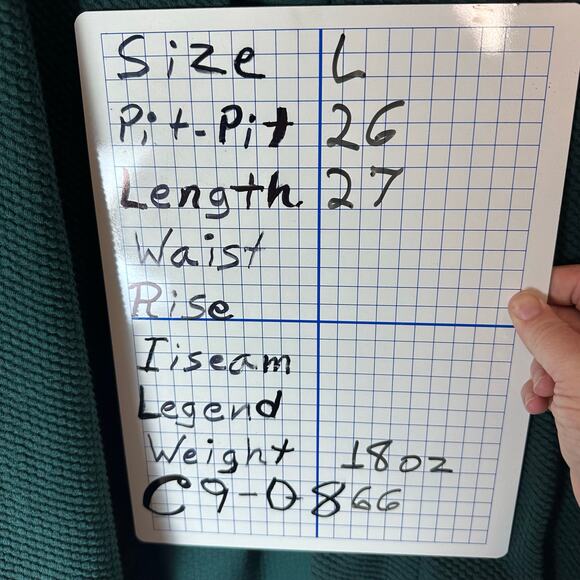 Size L
Pit-Pit 26
Length 27
Waist
Rise
Iiseam
Legend
Weight 18oz
C9-D866